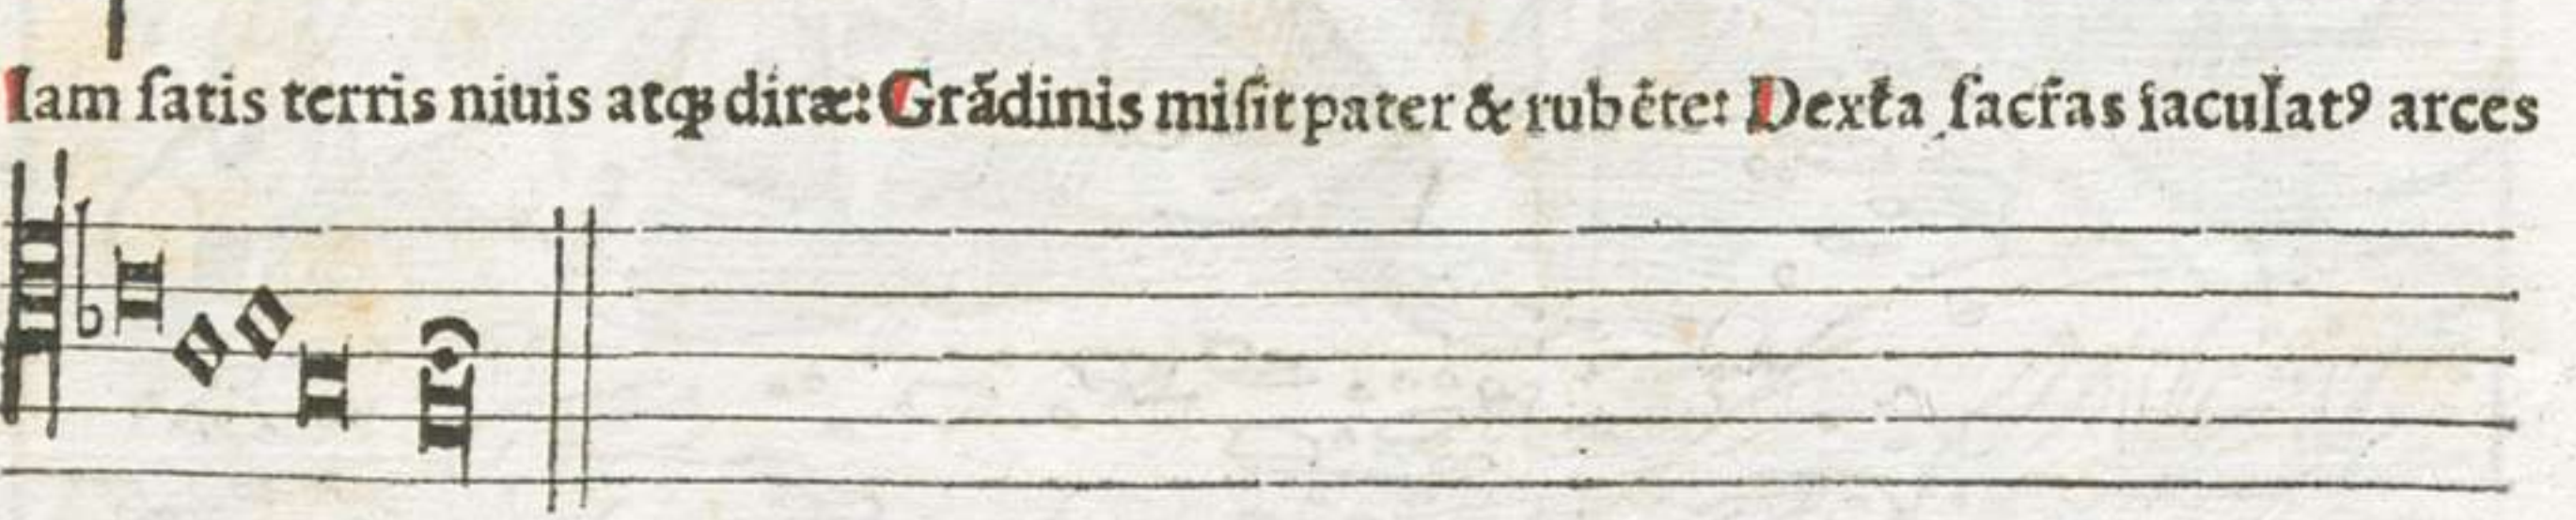 Iam ſatis terris niuis atqꝫ diræ: Grãdinis miſit pater & rubẽte: Dext̃a ſacr̃as iaculatꝰ arces